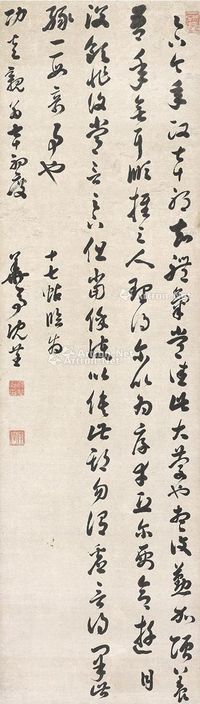 足下今年政七十耶知體氣常佳此大慶也想復懃加頤養
吾年垂耳順推之人理得尔以為厚幸尔要欲遊目
汶領非復常言足下但當保護以俟此期勿謂虛言得果此
緣一段奇事也
十七帖臨為
親翁七十初度
華亭沈荃